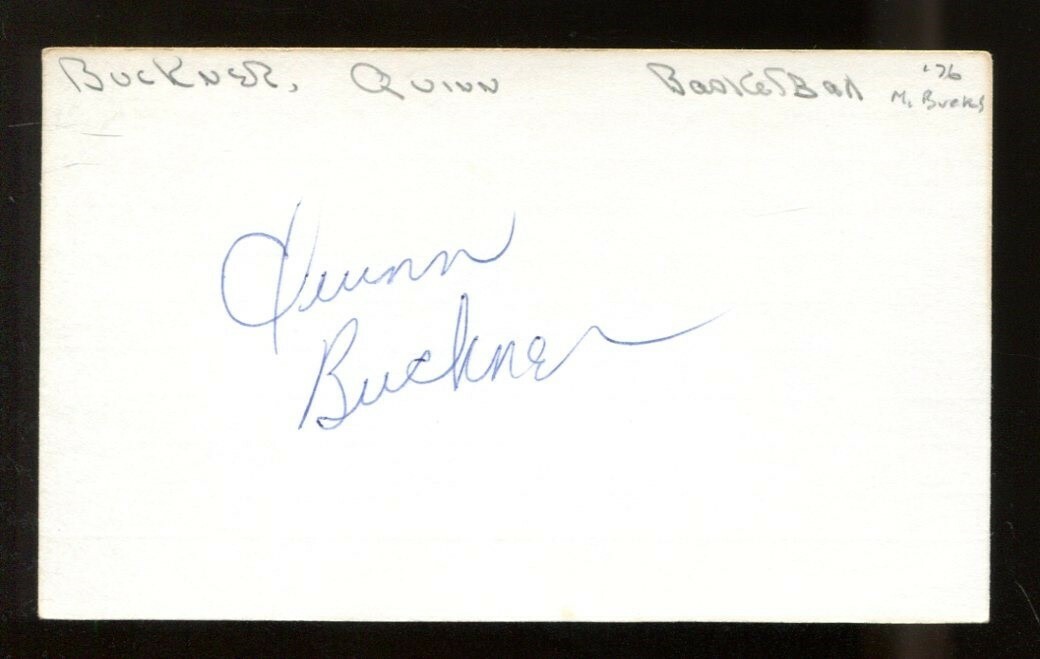 BUCKNER, QUINN BasketBall '76
M. Bucks
Quinn
Buckner